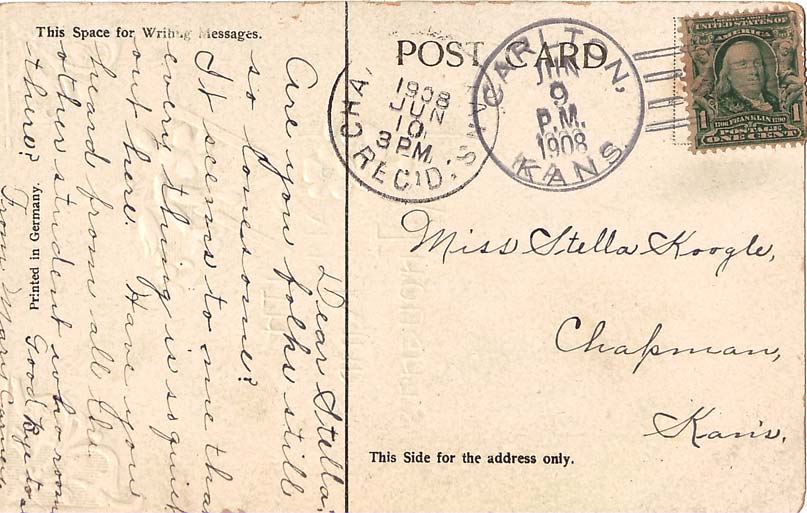 This Space for Writing Messages.
POST CARD
CARLTON,
JUN
9
P.M.
1908
KANS.
CHA
KANS.
1908
JUN
10.
3 P.M.
REC'D.
SERIES 1902
UNITED STATES OF
AMERICA
1706 FRANKLIN 1790
POSTAGE
1 ONE CENT 1
Dear Stella:
Are you folks still
so lonesome?
It seems to me tha
every thing is so quiet
out here. Have you
heard from all the
other student who room
there? Good bye to a
From Mary
Printed in Germany.
Miss Stella Koogle,
Chapman,
Kans.
This Side for the address only.